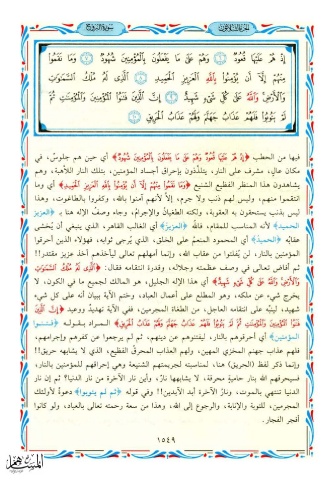 سورة البروج
إِذْ هُمْ عَلَيْهَا قُعُودٌ ﴿٦﴾ وَهُمْ عَلَىٰ مَا يَفْعَلُونَ بِالْمُؤْمِنِينَ شُهُودٌ ﴿٧﴾ وَمَا نَقَمُوا
مِنْهُمْ إِلَّا أَن يُؤْمِنُوا بِاللَّهِ الْعَزِيزِ الْحَمِيدِ ﴿٨﴾ الَّذِي لَهُ مُلْكُ السَّمَاوَاتِ
وَالْأَرْضِ وَاللَّهُ عَلَىٰ كُلِّ شَيْءٍ شَهِيدٌ ﴿٩﴾ إِنَّ الَّذِينَ فَتَنُوا الْمُؤْمِنِينَ وَالْمُؤْمِنَاتِ ثُمَّ
لَمْ يَتُوبُوا فَلَهُمْ عَذَابُ جَهَنَّمَ وَلَهُمْ عَذَابُ الْحَرِيقِ ﴿١٠﴾
فيها من الحطب ﴿إِذْ هُمْ عَلَيْهَا قُعُودٌ وَهُمْ عَلَىٰ مَا يَفْعَلُونَ بِالْمُؤْمِنِينَ شُهُودٌ﴾ أي حين هم جلوسٌ، في
مكان عالٍ، مشرف على النار، يتلذَّذون بإحراق أجساد المؤمنين، بتلك النار اللاهبة، وهم
يشاهدون هذا المنظر الفظيع الشنيع ﴿وَمَا نَقَمُوا مِنْهُمْ إِلَّا أَن يُؤْمِنُوا بِاللَّهِ الْعَزِيزِ الْحَمِيدِ﴾ أي وما
انتقموا منهم، وليس لهم ذنب ولا جرم، إلاَّ لأنهم آمنوا بالله، وكفروا بالطاغوت، وهذا
ليس بذنب يستحقون به العقوبة، ولكنه الطغيان والإجرام، وجاء وصفُ الإله هنا بـ ﴿العزيز
الحميد﴾ لأنه المناسب للمقام، فاللَّه ﴿العزيز﴾ أي الغالب القاهر، الذي ينبغي أن يُخشى
عقابُه ﴿الحميد﴾ أي المحمود المنعمُ على الخلق، الذي يُرجى ثوابه، فهؤلاء الذين أحرقوا
المؤمنين بالنار، لن يُفلتوا من عقاب الله، وإنما أمهلهم تعالى ليأخذهم أخذ عزيز مقتدر!!
ثم أفاض تعالى في وصف عظمته وجلاله، وقدرة انتقامه فقال: ﴿الَّذِي لَهُ مُلْكُ السَّمَاوَاتِ
وَالْأَرْضِ وَاللَّهُ عَلَىٰ كُلِّ شَيْءٍ شَهِيدٌ﴾ أي هذا الإله الجليل، هو المالك لجميع ما في الكون، لا
يخرج شيء عن ملكه، وهو المطلع على أعمال العباد، وختم الآية ببيان أنه على كل شيء
شهيد، لينبِّه على انتقامه العاجل، من الطغاة المجرمين، ففي الآية تهديدٌ ووعيد ﴿إِنَّ الَّذِينَ
فَتَنُوا الْمُؤْمِنِينَ وَالْمُؤْمِنَاتِ ثُمَّ لَمْ يَتُوبُوا فَلَهُمْ عَذَابُ جَهَنَّمَ وَلَهُمْ عَذَابُ الْحَرِيقِ﴾ المراد بقوله ﴿فتنوا
المؤمنين﴾ أي أحرقوهم بالنار، ليفتنوهم عن دينهم، ثم لم يرجعوا عن كفرهم وإجرامهم،
فلهم عذاب جهنم المخزي المهين، ولهم العذاب المحرقُ الفظيع، الذي لا يشابهه حريق!!
وإنما ذكر لفظ (الحريق) هنا، لمناسبته لجريمتهم الشنيعة وهي إحراقهم للمؤمنين بالنار،
فسيحرقهم الله بنار حاميةٍ محرقة، لا يشابهها نارٌ، وأين نار الآخرة من نار الدنيا؟ ثم إن نار
الدنيا تنتهي بالموت، ونارُ الآخرة أبد الآبدين!! وفي قوله ﴿ثم لم يتوبوا﴾ دعوةٌ لأولئك
المجرمين، للتوبة والإنابة، والرجوع إلى الله، وهذا من سعة رحمته تعالى بالعباد، ولو كانوا
أفجر الفجار.
١٥٤٩